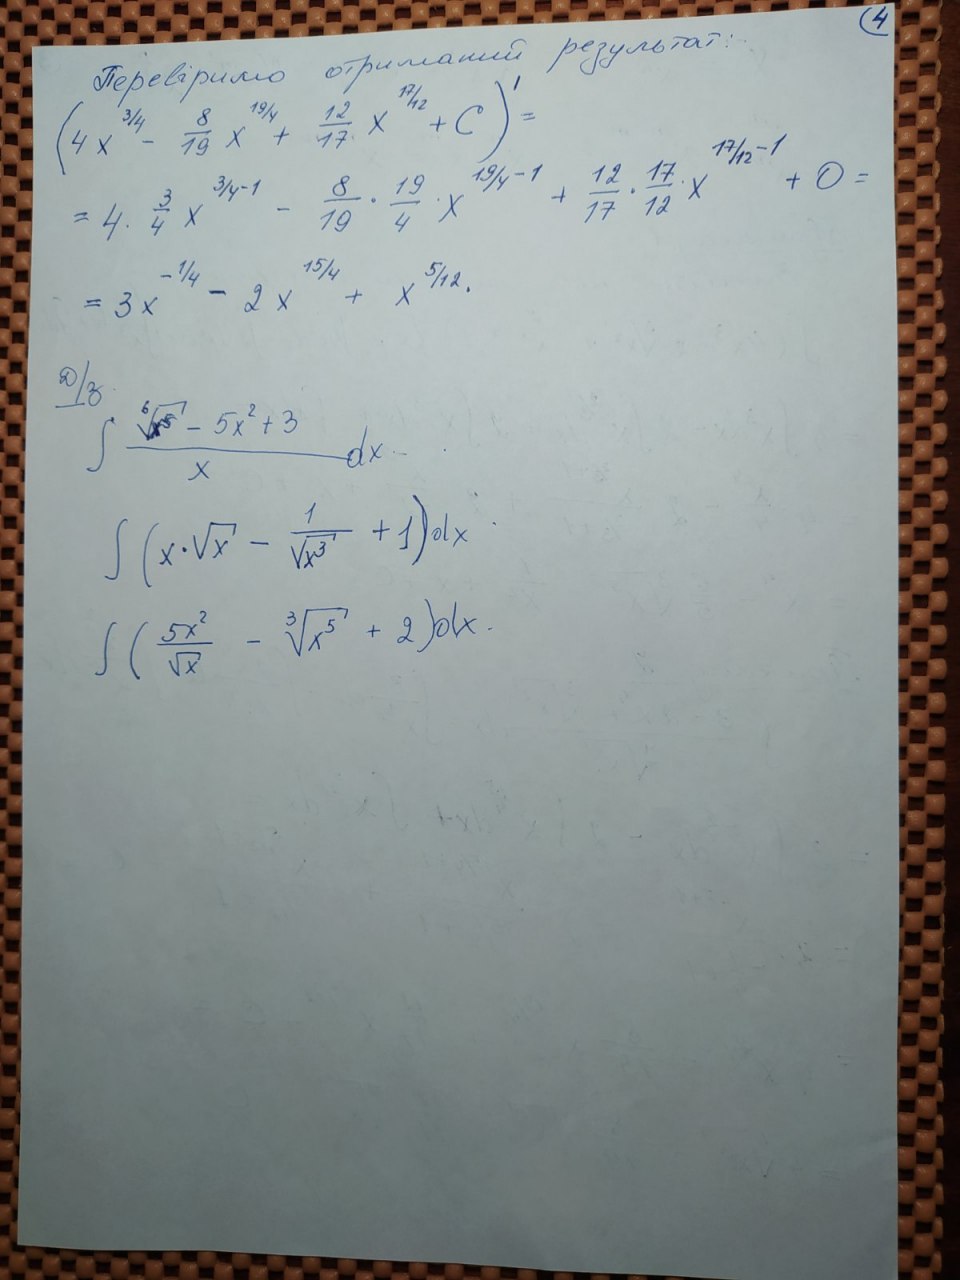 (4
Перевіримо отриманий результат:
(4x^{3/4} - \frac{8}{19} x^{19/4} + \frac{12}{17} x^{17/12} + C)' =
= 4 · \frac{3}{4} x^{3/4-1} - \frac{8}{19} · \frac{19}{4} · x^{19/4-1} + \frac{12}{17} · \frac{17}{12} · x^{17/12-1} + 0 =
= 3x^{-1/4} - 2x^{15/4} + x^{5/12}.
Д/з.
∫ \frac{\sqrt[6]{x^5} - 5x^2 + 3}{x} dx.
∫ (x·\sqrt{x} - \frac{1}{\sqrt{x^3}} + 1) dx.
∫ (\frac{5x^2}{\sqrt{x}} - \sqrt[3]{x^5} + 2) dx.